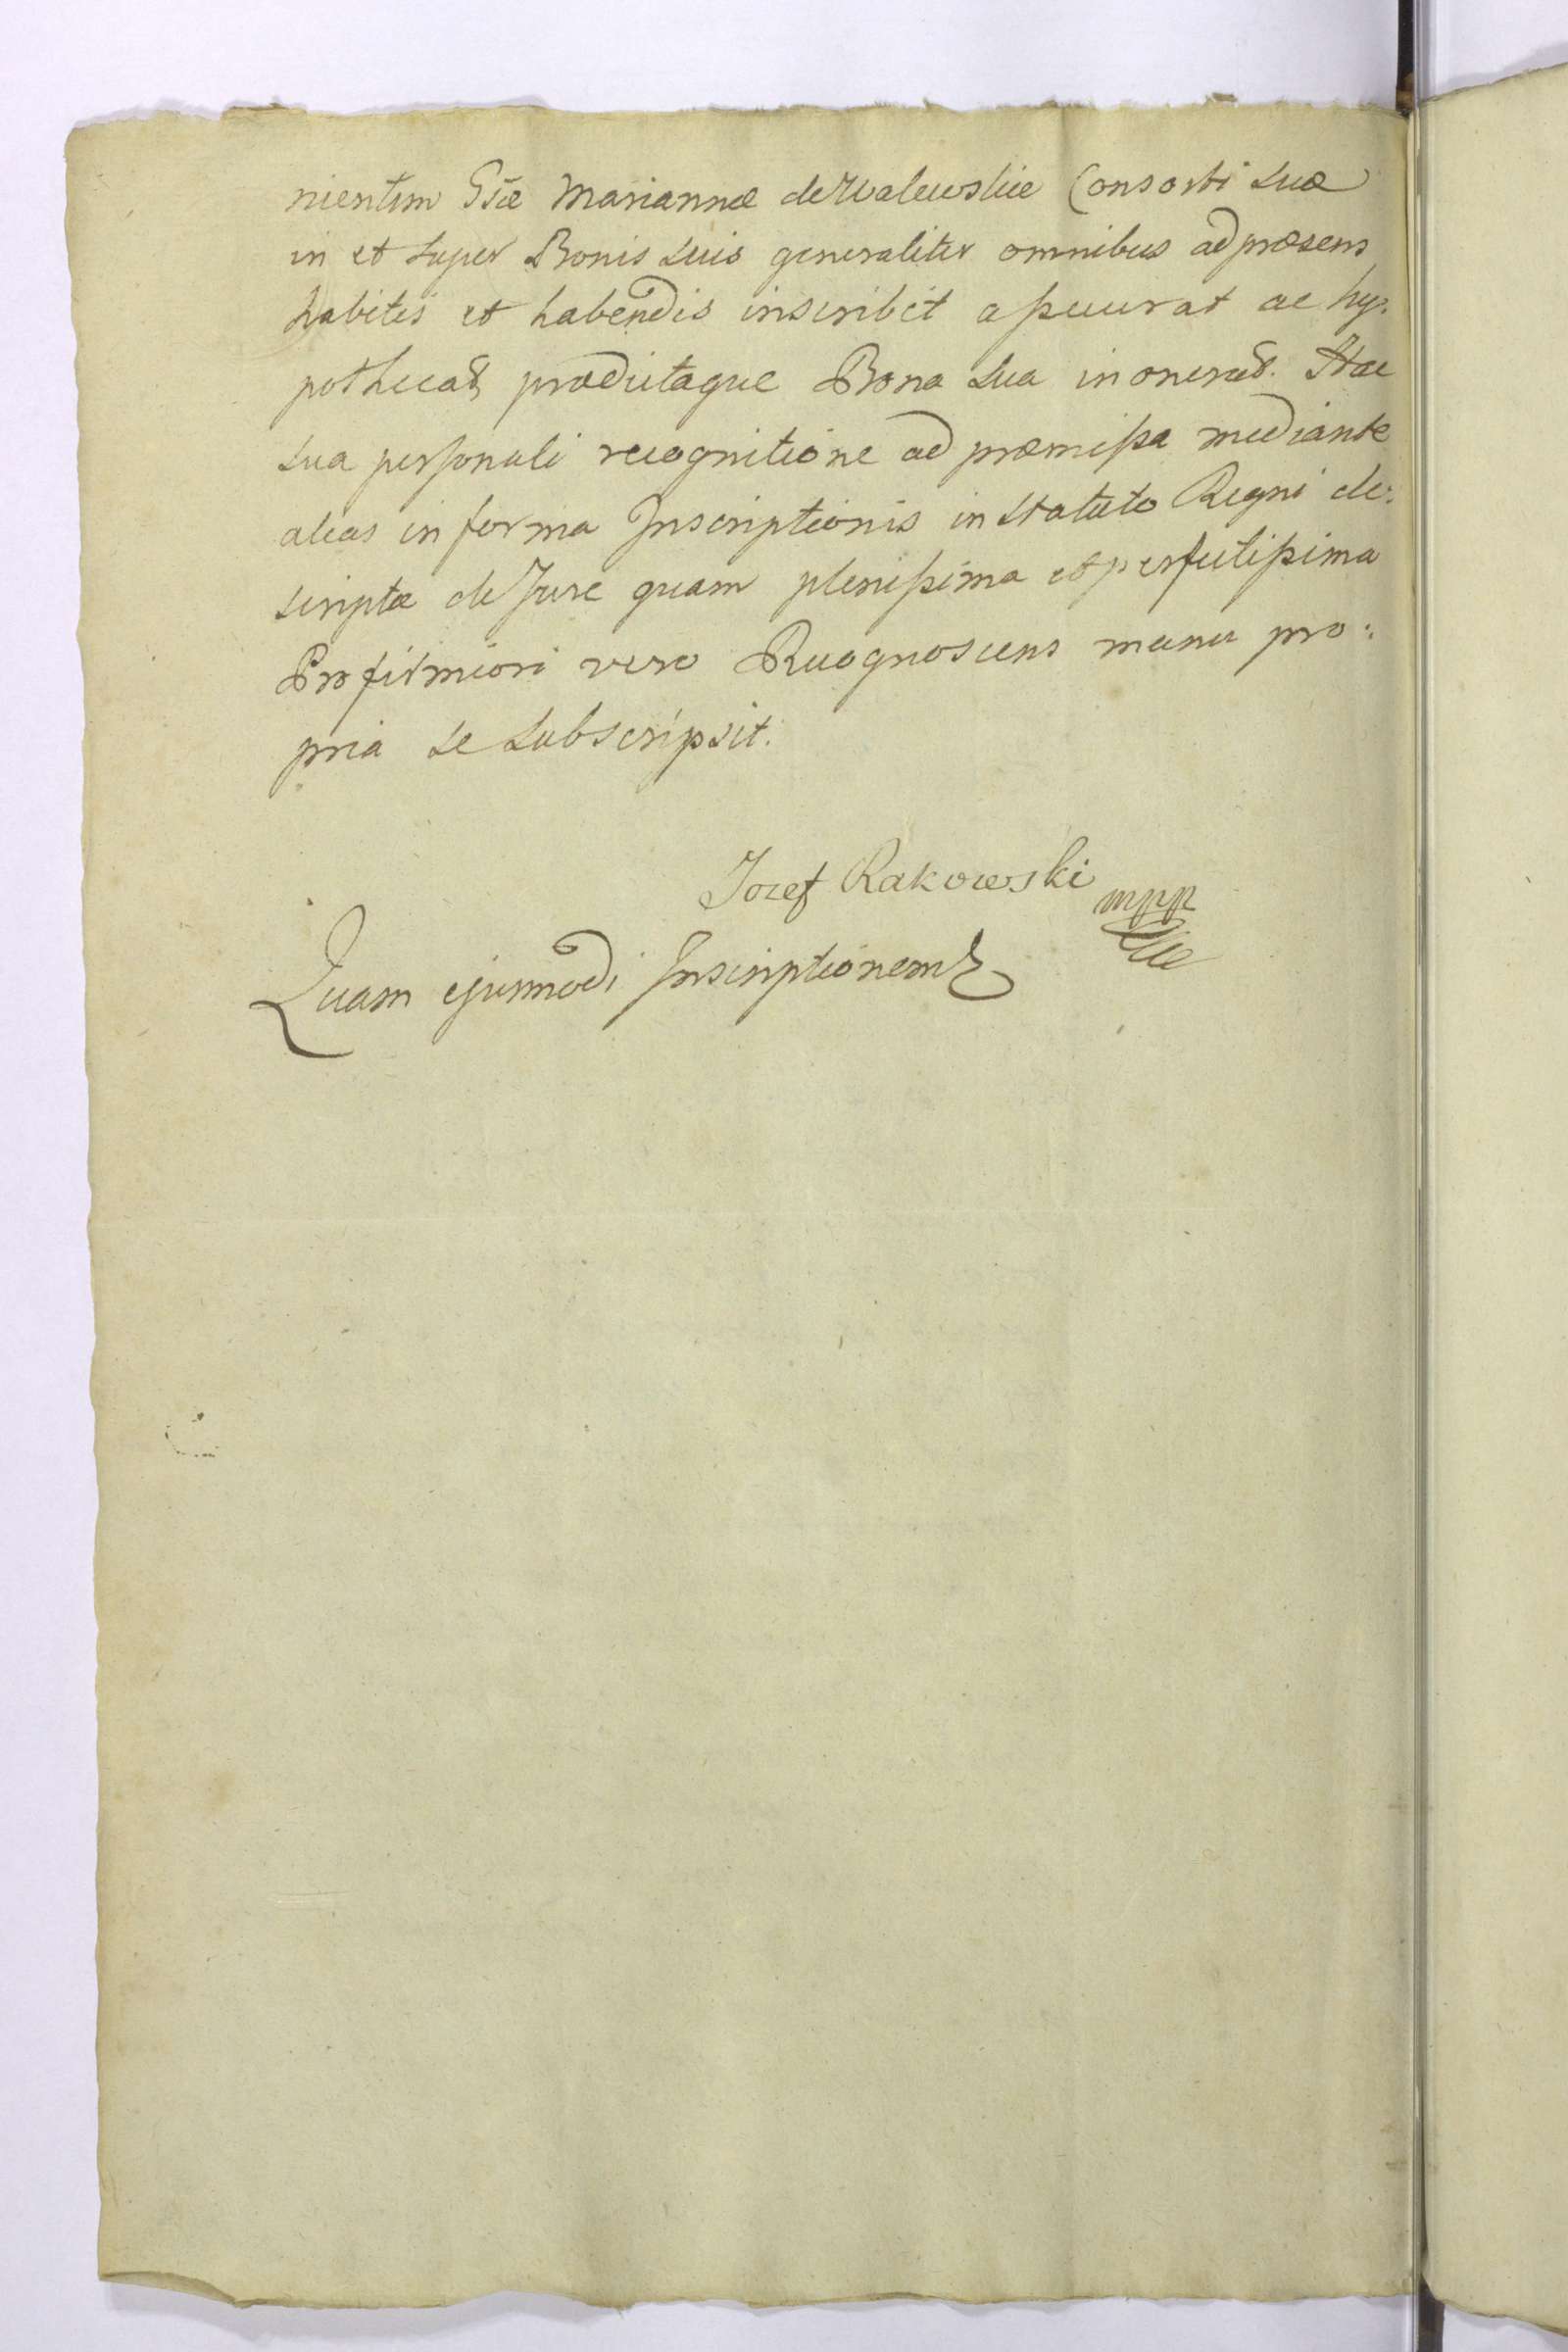 nientem Gsæ Mariannæ de Walewskie Consorti suæ
in et super Bonis suis generaliter omnibus ad præsens
habitis et habendis inscribit assecurat ac hy:
pothecat, prædictaque Bona sua inonerat. Hac
sua personali recognitione ad præmissa mediante
alias in forma Inscriptionis in Statuto Regni de:
scriptæ de Jure quam plenissima et perfectissima
Pro firmiori vero Recognoscens manu pro:
pria se subscripsit.
Jozef Rakowski mpp
Quam ejusmodi Inscriptionem